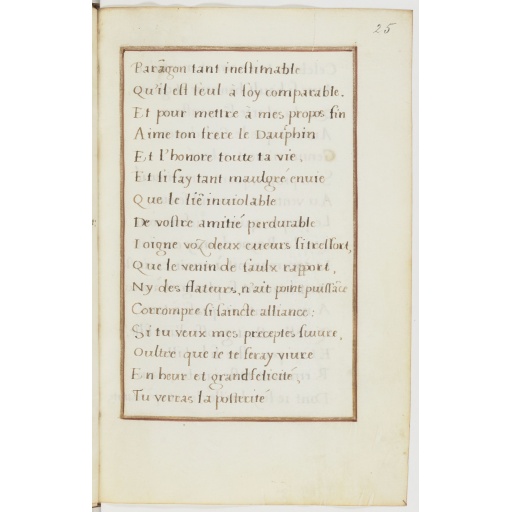 25
Parãgon tant inestimable
Qu'il est seul a soy comparable.
Et pour mettre à mes propos fin
Aime ton frere le Dauphin
Et l'honore toute ta vie.
Et si fay tant maulgré enuie
Que le liē inuiolable
De vostre amitié perdurable
Ioigne voz deux cueurs si tresfort,
Que le venin de faulx rapport,
Ny des flateurs, n'ait point puissāce
Corrompre si saincte alliance:
Si tu veux mes preceptes suiure,
Oultre que ie te feray viure
En heur et grand felicité,
Tu verras la posterité